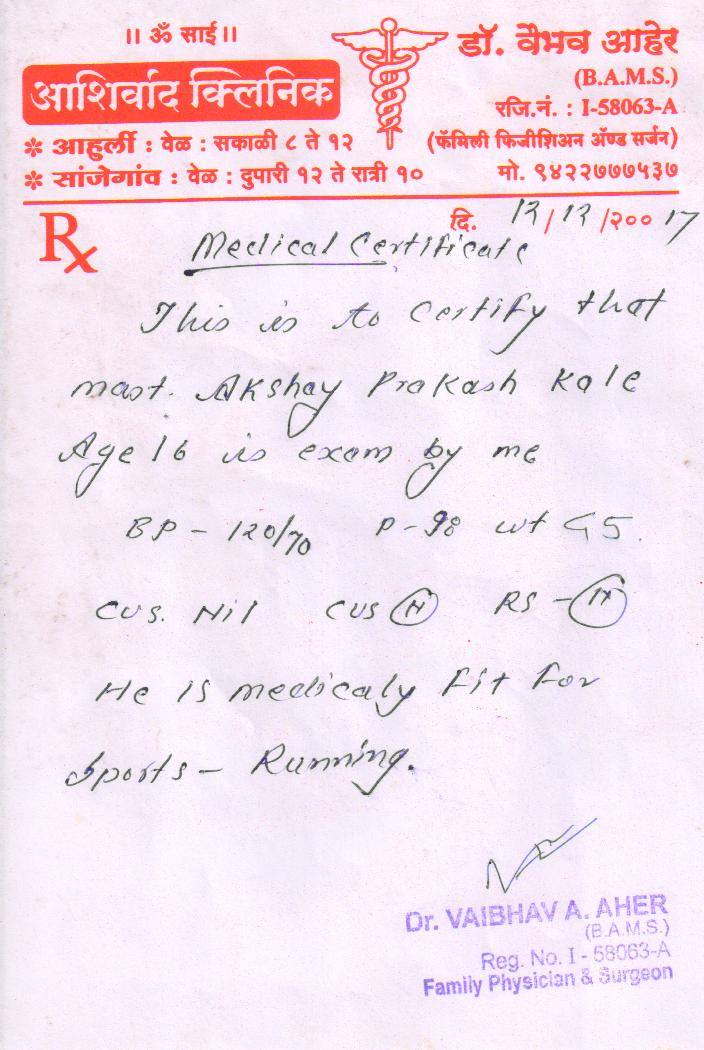 ।। ॐ साई ।।
आशिर्वाद क्लिनिक
डॉ. वैभव आहेर
(B.A.M.S.)
रजि.नं. : I-58063-A
(फॅमिली फिजीशिअन ॲण्ड सर्जन)
मो. ९४२२७७७५३७
✽ आहुर्ली : वेळ : सकाळी ८ ते १२
✽ सांजेगांव : वेळ : दुपारी १२ ते रात्री १०
Rx
दि. 12/12/२००17
Medical Certificate
This is to certify that
mast. Akshay Prakash Kale
Age 16 is exam by me
BP - 120/70 P-98 wt 45.
cvs. Nil cvs (N) RS -
He is medicaly fit for
sports - Running.
Dr. VAIBHAV A. AHER
(B.A.M.S.)
Reg. No. I - 58063-A
Family Physician & Surgeon